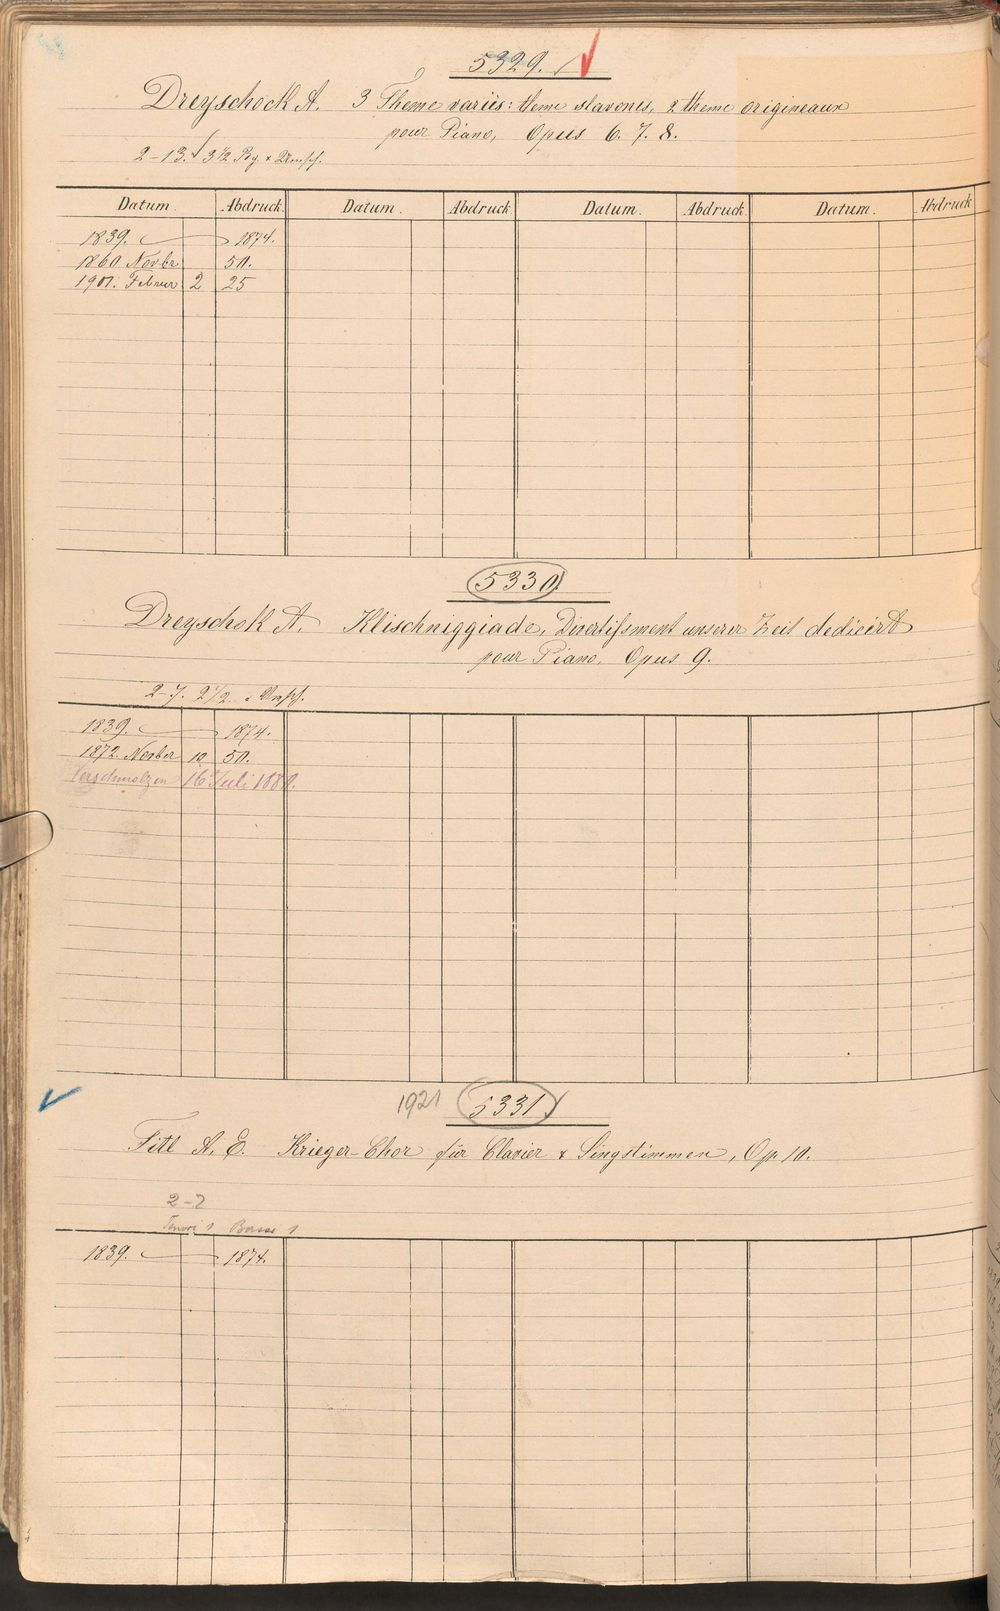 5329.
Dreyschock A. 3 Theme variés: theme slavones, 2 theme origineaux
pour Piano, Opus 6. 7. 8.
2-13. 3 1/2 Bg. + Umsch.
Datum. Abdruck. Datum. Abdruck Datum. Abdruck Datum. Abdruck
1839. 1874.
1860 Novbr 50.
1901. Februar 2 25
5330
Dreyschok A. Klischniggiade, Divertissment unserer Zeit dediciert
pour Piano. Opus 9.
2-7. 2 1/2 Umsch.
1839. 1874.
1872. Novber 10 50.
Verschmolzen 16 Juli 1880.
1921 5331
Titl A. E. Krieger-Chor für Clavier & Singstimmen, Op. 10.
2-7
Tenori 1 Basse 1
1839. 1874.